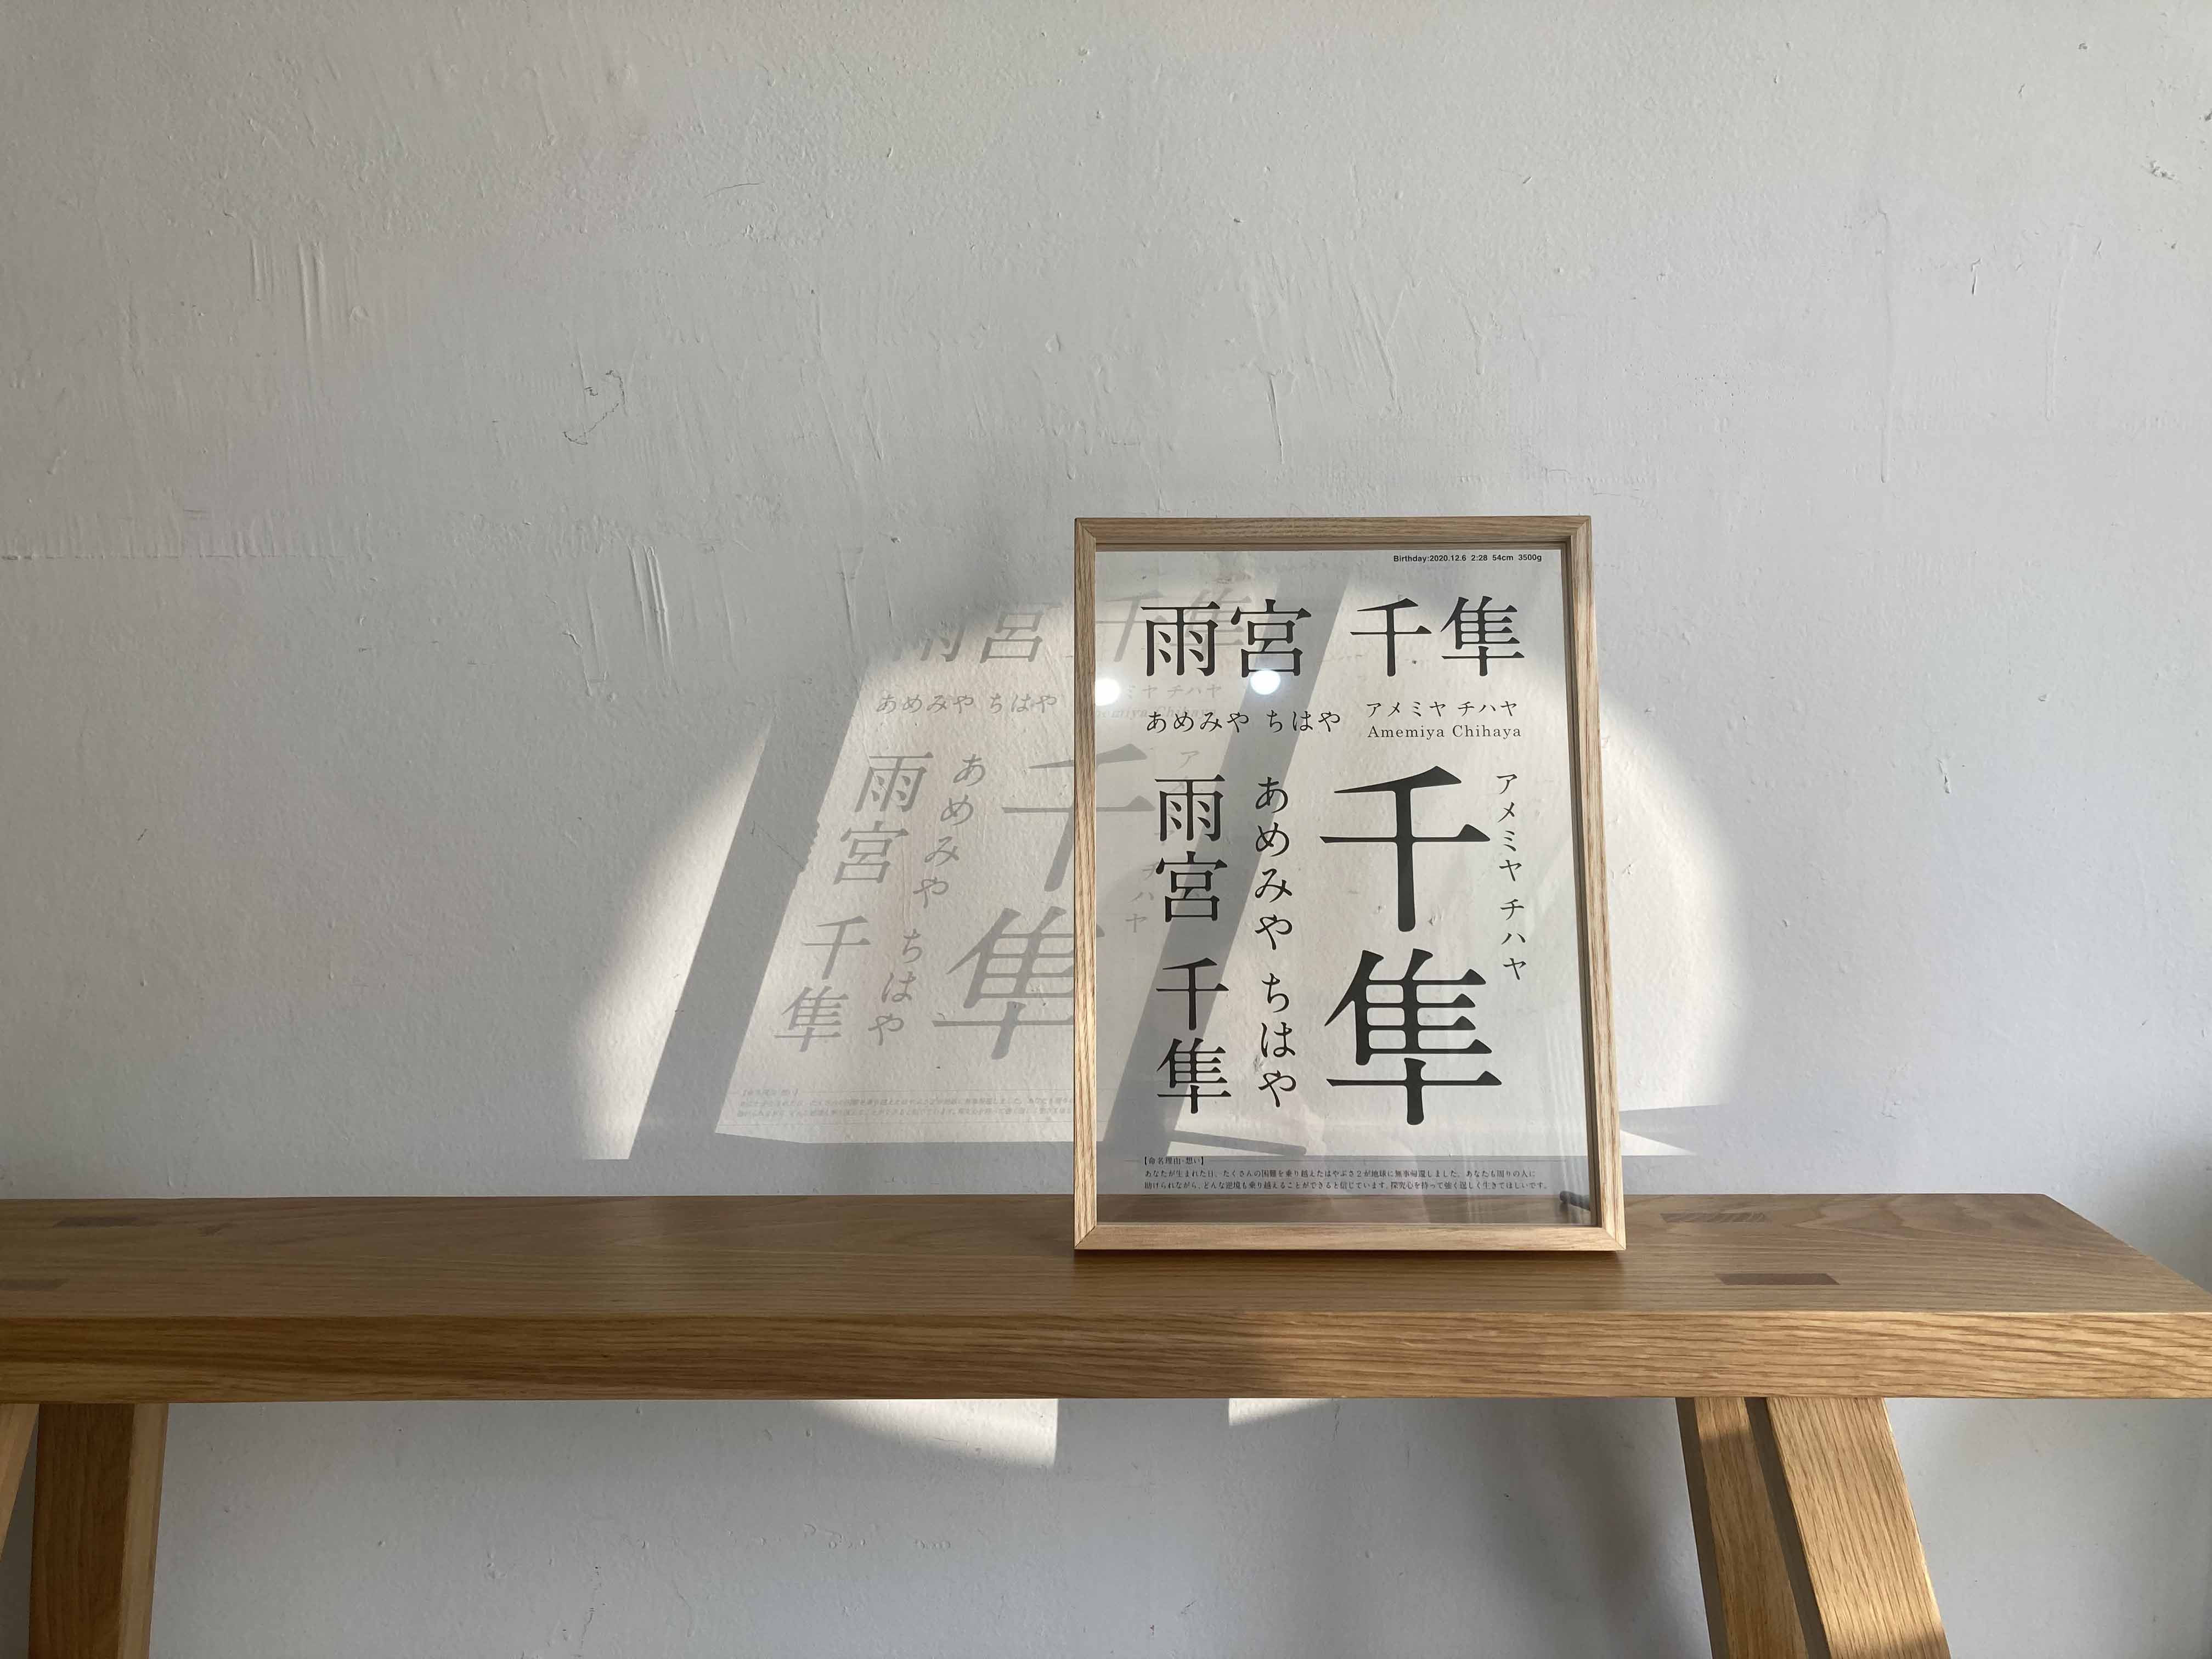 Birthday:2020.12.6 2:28 54cm 3500g
雨宮 千隼
あめみや ちはや
アメミヤ チハヤ
Amemiya Chihaya
千隼
アメミヤ チハヤ
あめみや ちはや
雨宮 千隼
【命名理由・想い】
あなたが生まれた日、たくさんの困難を乗り越えたはやぶさ２が地球に無事帰還しました。あなたも周りの人に
助けられながら、どんな逆境も乗り越えることができると信じています。探究心を持って強く逞しく生きてほしいです。